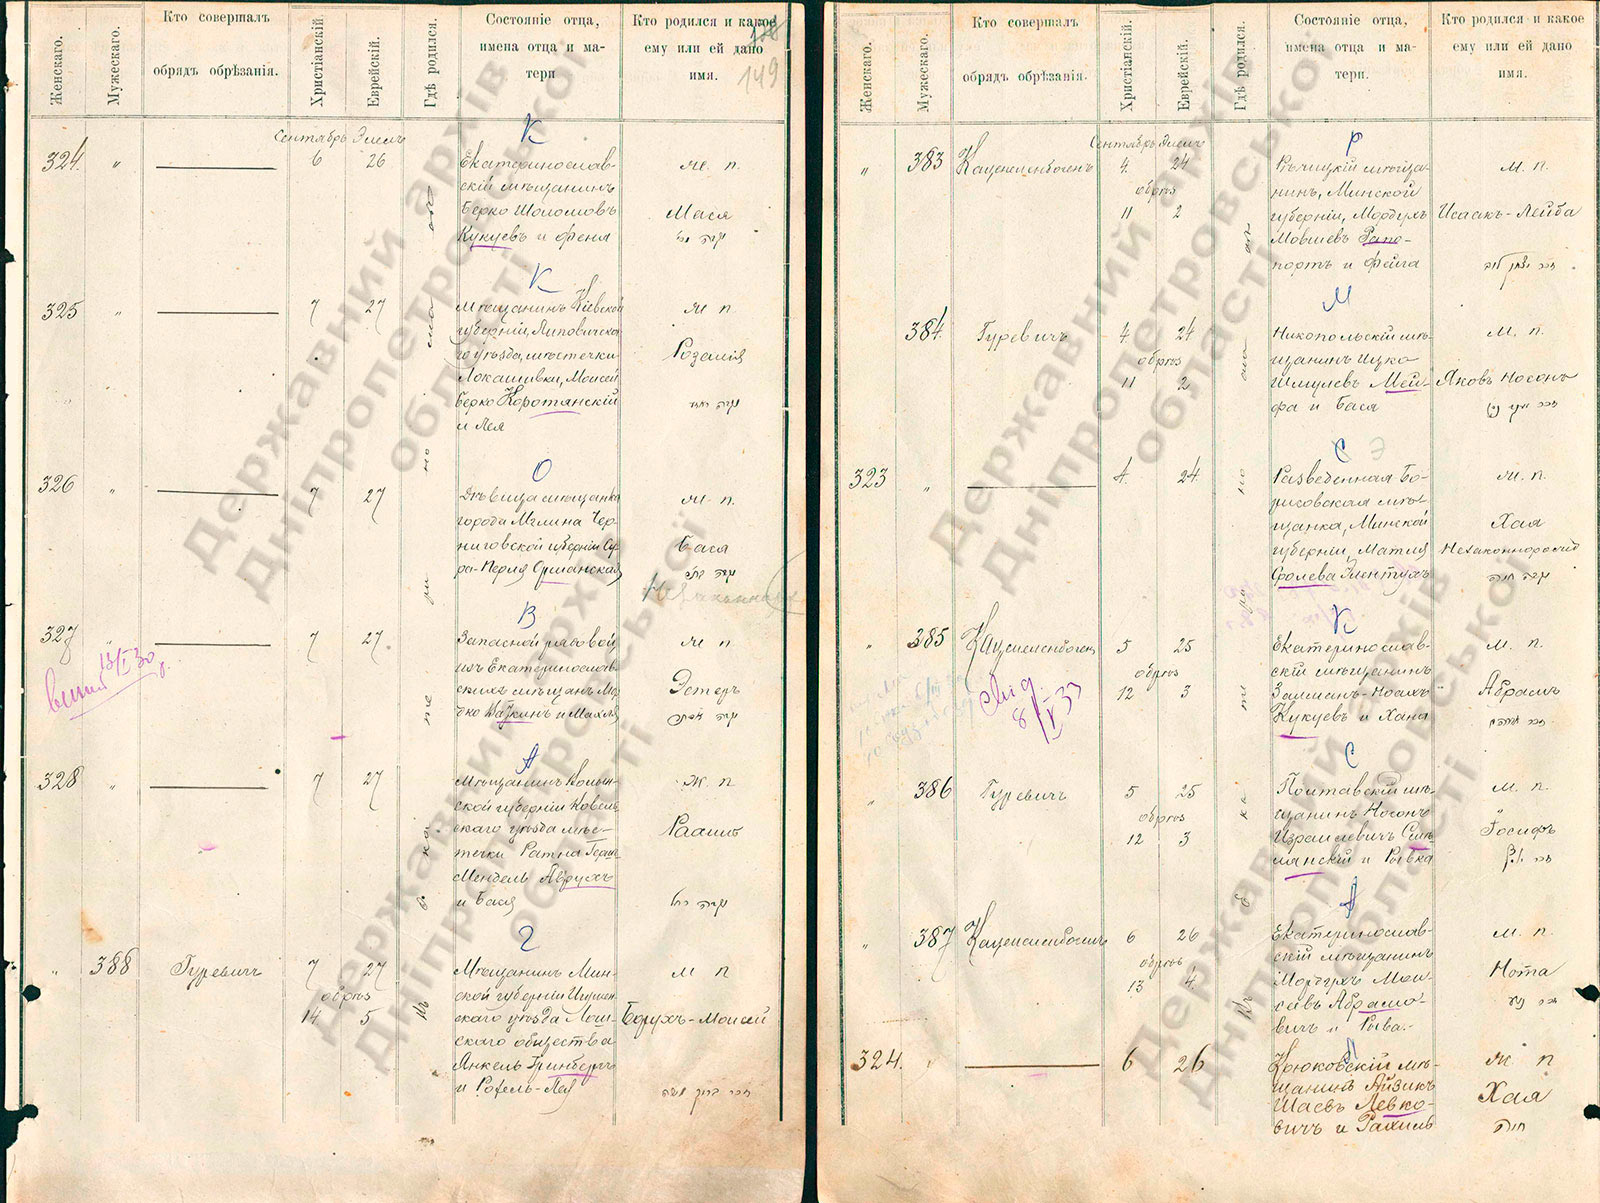 Женскаго.
Мужескаго.
Кто совершалъ
обрядъ обрѣзанія.
Христіанскій.
Еврейскій.
Гдѣ родился.
Состояніе отца,
имена отца и ма-
тери
Кто родился и какое
ему или ей дано
имя.
149
Сентябрь Элелъ
К
324. " 6 26
Екатеринослав-
скій мѣщанинъ
Берко Шоломовъ
Кукуевъ и Феня
ж. п.
Мася
К
325 " 7 27
Мѣщанинъ Кіевской
губерніи, Липовецка-
го уѣзда, мѣстечки
Локашивки, Моисей
Берко Коротянскій
и Лея
ж п.
Розалія
О
326 " 7 27
Дѣвица мѣщанка
города Мглина Чер-
ниговской губерніи Су-
ра-Перля Оршанская
ж. п.
Бася
В
327 " 7 27.
Запасной рядовой
изъ Екатеринослав-
скихъ мѣщанъ
и Махля
ж п
Эстеръ
13/I 30
А
328 " 7 27
Мѣщанинъ Волын-
ской губерніи Ковель-
скаго уѣзда мѣс-
течки Ратна Герш-
Мендель Аврухъ
и Бася
ж п
Г
" 388 Гуревичъ 7 27
обрѣз
14 5
Мѣщанинъ Мин-
ской губерніи Игумен-
скаго уѣзда
скаго общества
Янкель Гринбергъ
и Рохель-Лея
м п
Борухъ-Моисей
Въ Екатеринославѣ
Женскаго.
Мужескаго.
Кто совершалъ
обрядъ обрѣзанія.
Христіанскій.
Еврейскій.
Гдѣ родился.
Состояніе отца,
имена отца и ма-
тери.
Кто родился и какое
ему или ей дано
имя.
Сентябрь Элелъ
Р
" 383 Каценеленбогенъ 4 24
обрѣз
11 2
Рѣчицкій мѣща-
нинъ, Минской
губерніи, Мордухъ
Мовшевъ Рапо-
портъ и Фейга
м. п.
Исаакъ-Лейба
М
384. Гуревичъ 4 24
обрѣз
11 2
Никопольскій мѣ-
щанинъ Ицко
Шмулевъ Мей-
фа и Бася
м. п.
Яковъ Носонъ
С Э
323 " 4. 24.
Разведенная Бо-
рисовская мѣ-
щанка, Минской
губерніи, Матля
Фролева Элентухъ
ж. п.
Хая
Незаконнорожд
К
" 385 Каценеленбоген 5 25
обрѣз
12 3
Екатеринослав-
скій мѣщанинъ
Залманъ-Ноахъ
Кукуевъ и Хана
м. п.
Абрамъ
С
" 386 Гуревичъ 5 25
обрѣз
12 3
Полтавскій мѣ-
щанинъ Носонъ
Израилевичъ Смѣ-
лянскій и Рывка
м. п.
Іосифъ
А
" 387 Каценеленбогенъ 6 26
обрѣз
13 4.
Екатеринослав-
скій мѣщанинъ
Мордухъ Мои-
сеевъ Абрамо-
вичъ и Рыва.
м. п.
Нота
324. " 6 26
Крюковскій мѣ-
щанинъ Айзикъ
Шаевъ Левко-
вичъ и Рахиль
ж п
Хая
חיה
Державний архів
Дніпропетровської
області
Державний архів
Дніпропетровської
області
Державний архів
Дніпропетровської
області
Державний архів
Дніпропетровської
області